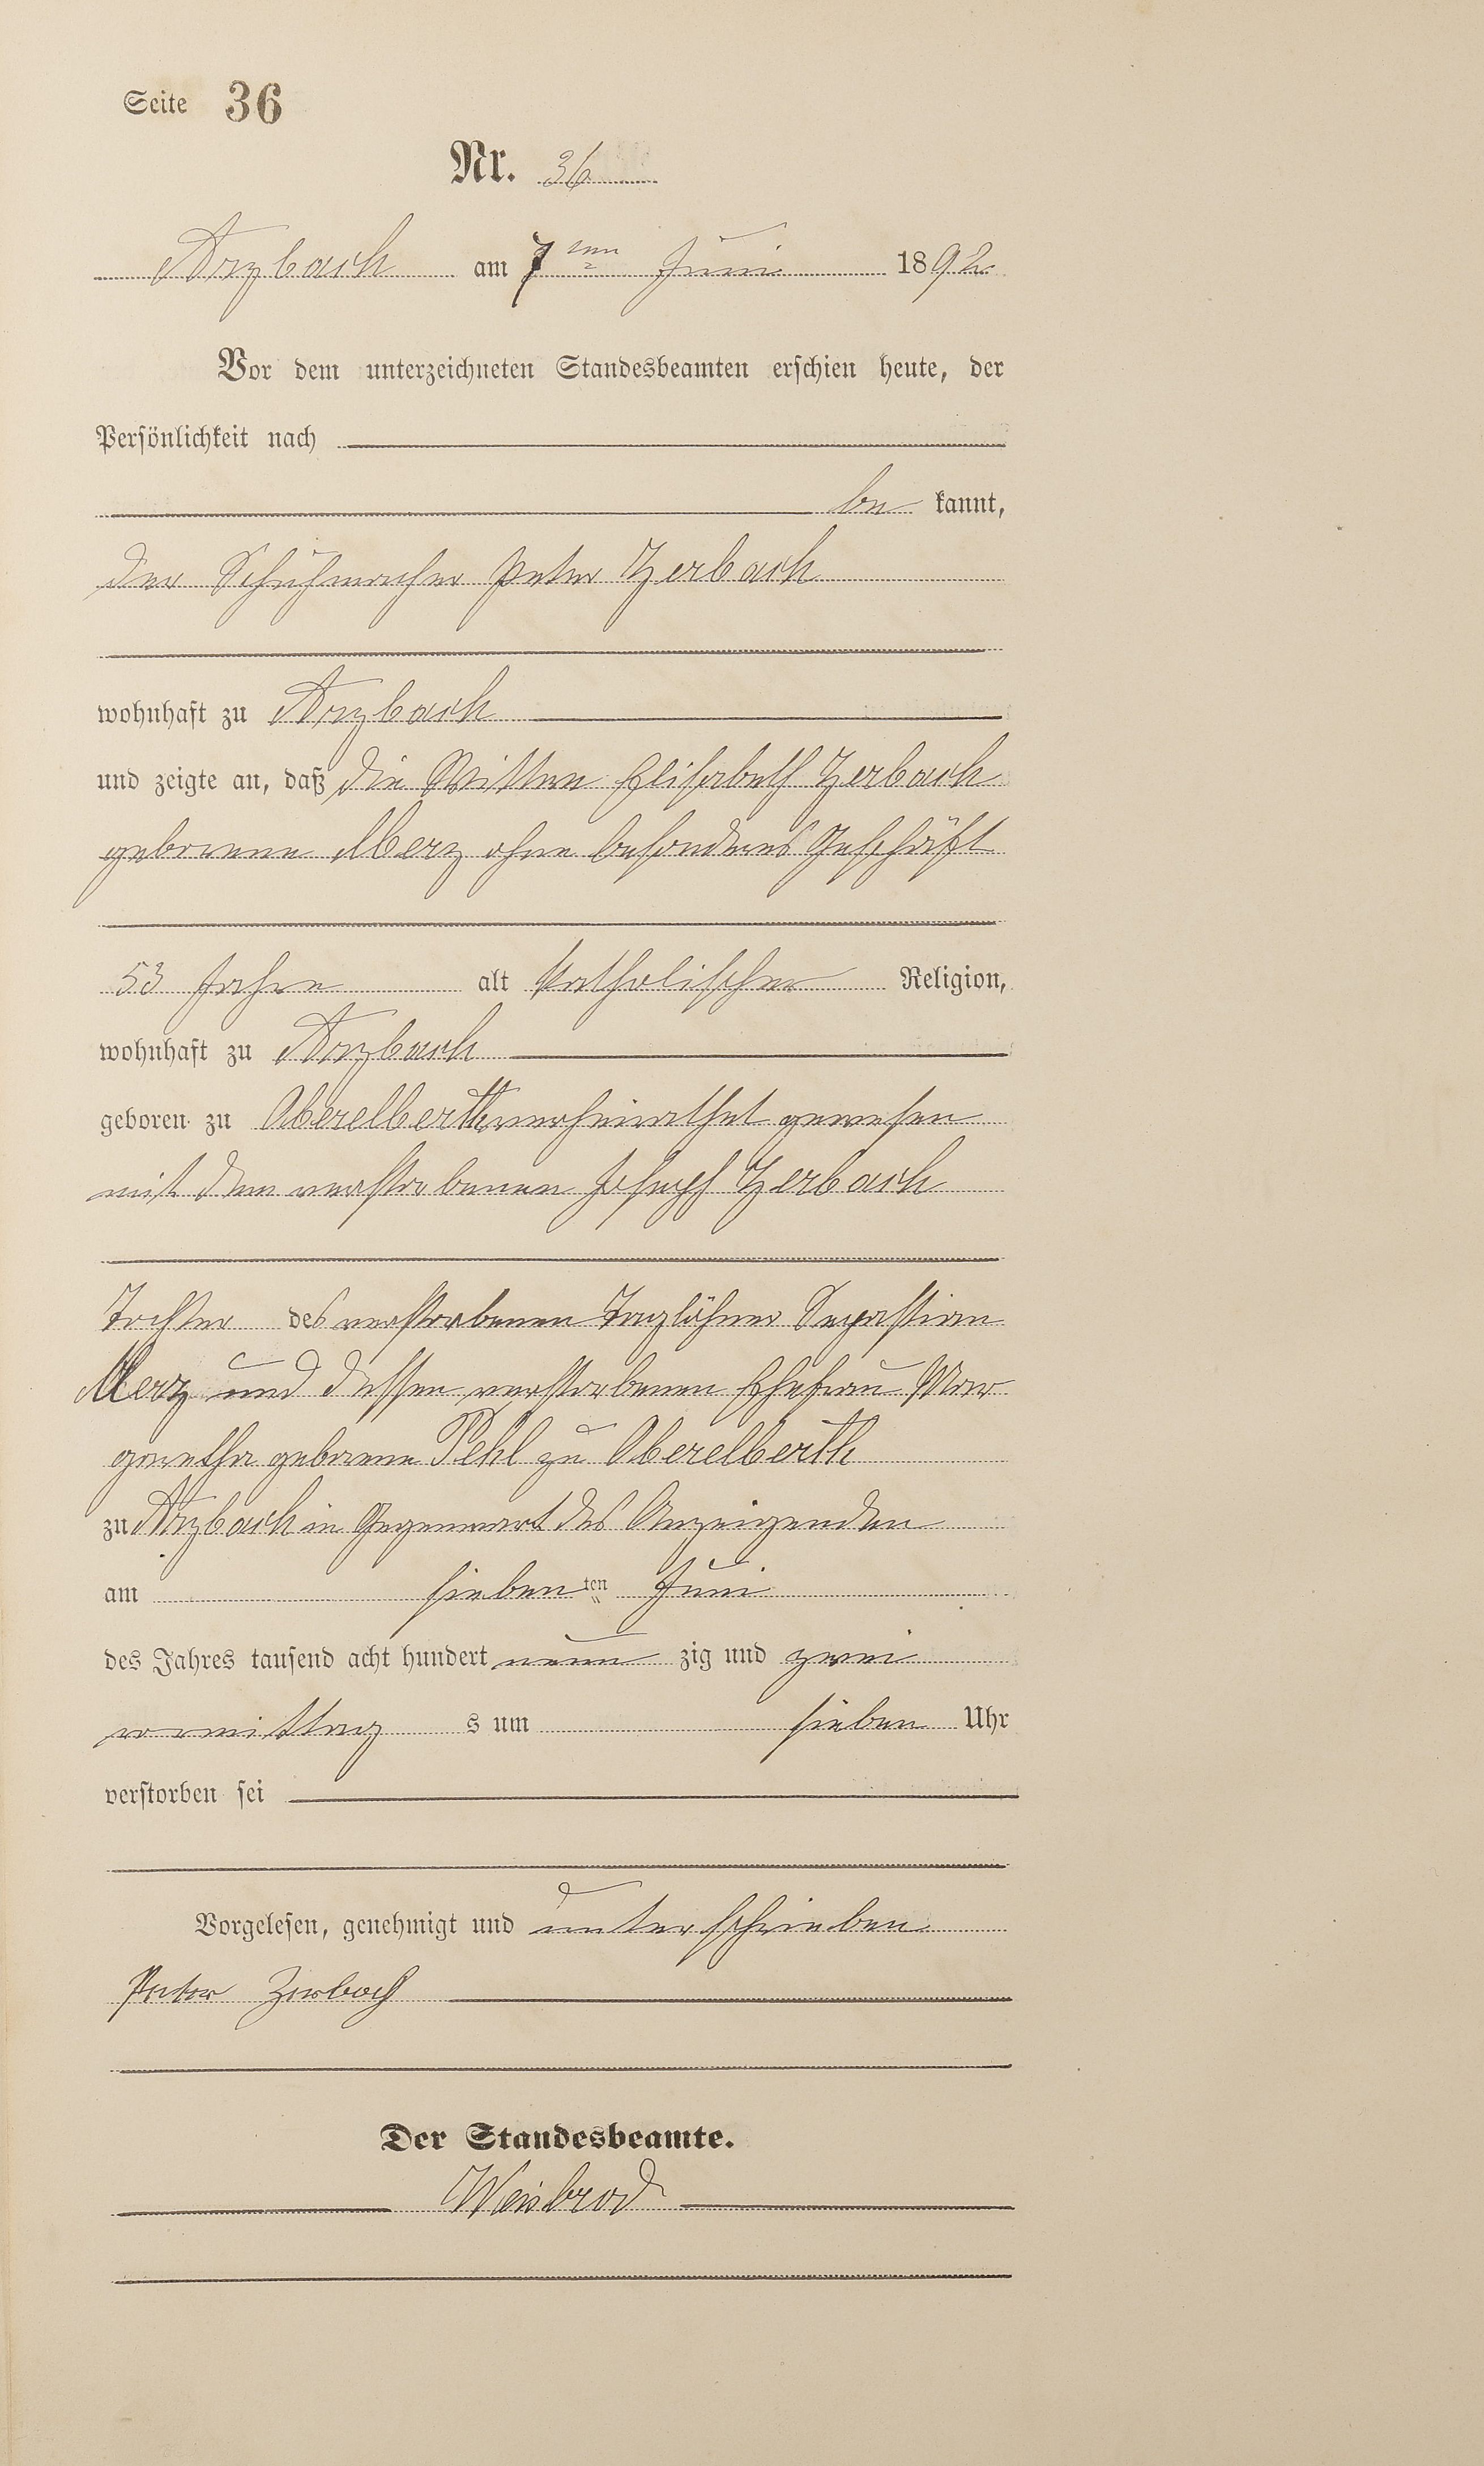 Seite 36
Nr. 36
Arzbach am 7ten Juni 1892
Vor dem unterzeichneten Standesbeamten erschien heute, der
Persönlichkeit nach
be kannt,
der Schuhmacher Peter Zerbach
wohnhaft zu Arzbach
und zeigte an, daß die Wittwe Elisabeth Zerbach
geborene Merz ohne besonderes Geschäft
53 Jahre alt katholischer Religion,
wohnhaft zu Arzbach
geboren zu Oberelberth verheirathet gewesen
mit dem verstorbenen Joseph Zerbach
Tochter des verstorbenen Taglöhner Sepastian
Merz und dessen verstorbenen Ehefrau Mar
garetha geborene Pehl zu Oberelberth
zu Arzbach in Gegenwart des Anzeigenden
am siebenten Juni
des Jahres tausend acht hundert neun zig und zwei
vormittag s um sieben Uhr
verstorben sei
Vorgelesen, genehmigt und unterschrieben
Peter Zerbach
Der Standesbeamte.
Weisbrod